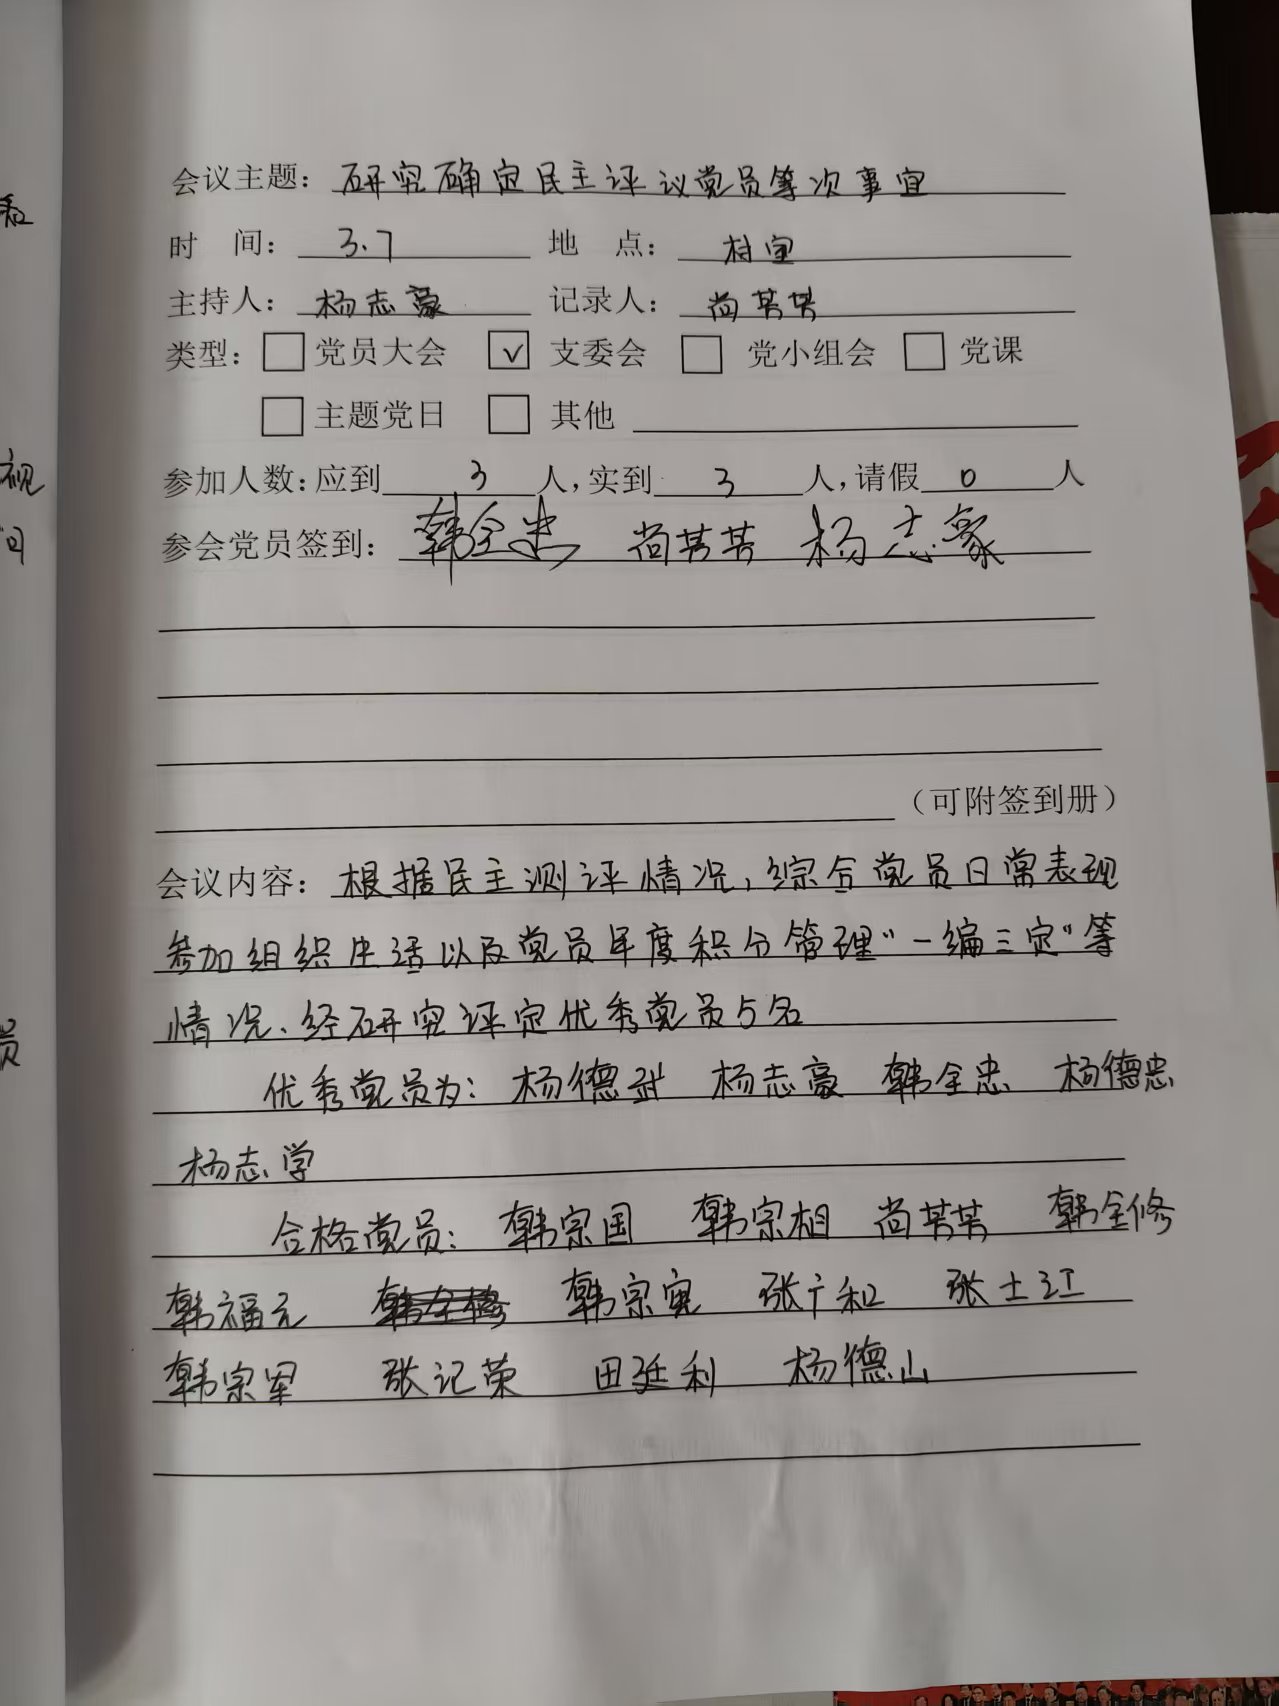 会议主题：研究确定民主评议党员等次事宜
时 间：3.7 地 点：村室
主持人：杨志豪 记录人：尚芳芳
类型：□党员大会 ☑支委会 □党小组会 □党课
□主题党日 □其他
参加人数：应到3人，实到3人，请假0人
参会党员签到：韩全忠 尚芳芳 杨志豪
（可附签到册）
会议内容：根据民主测评情况，综合党员日常表现
参加组织生活以及党员年度积分管理“一编三定”等
情况、经研究评定优秀党员5名
优秀党员为：杨德武 杨志豪 韩全忠 杨德忠
杨志学
合格党员：韩宗国 韩宗相 尚芳芳 韩全修
韩福元 韩全修 韩宗宪 张广和 张士江
韩宗军 张记荣 田廷利 杨德山
表
视
员